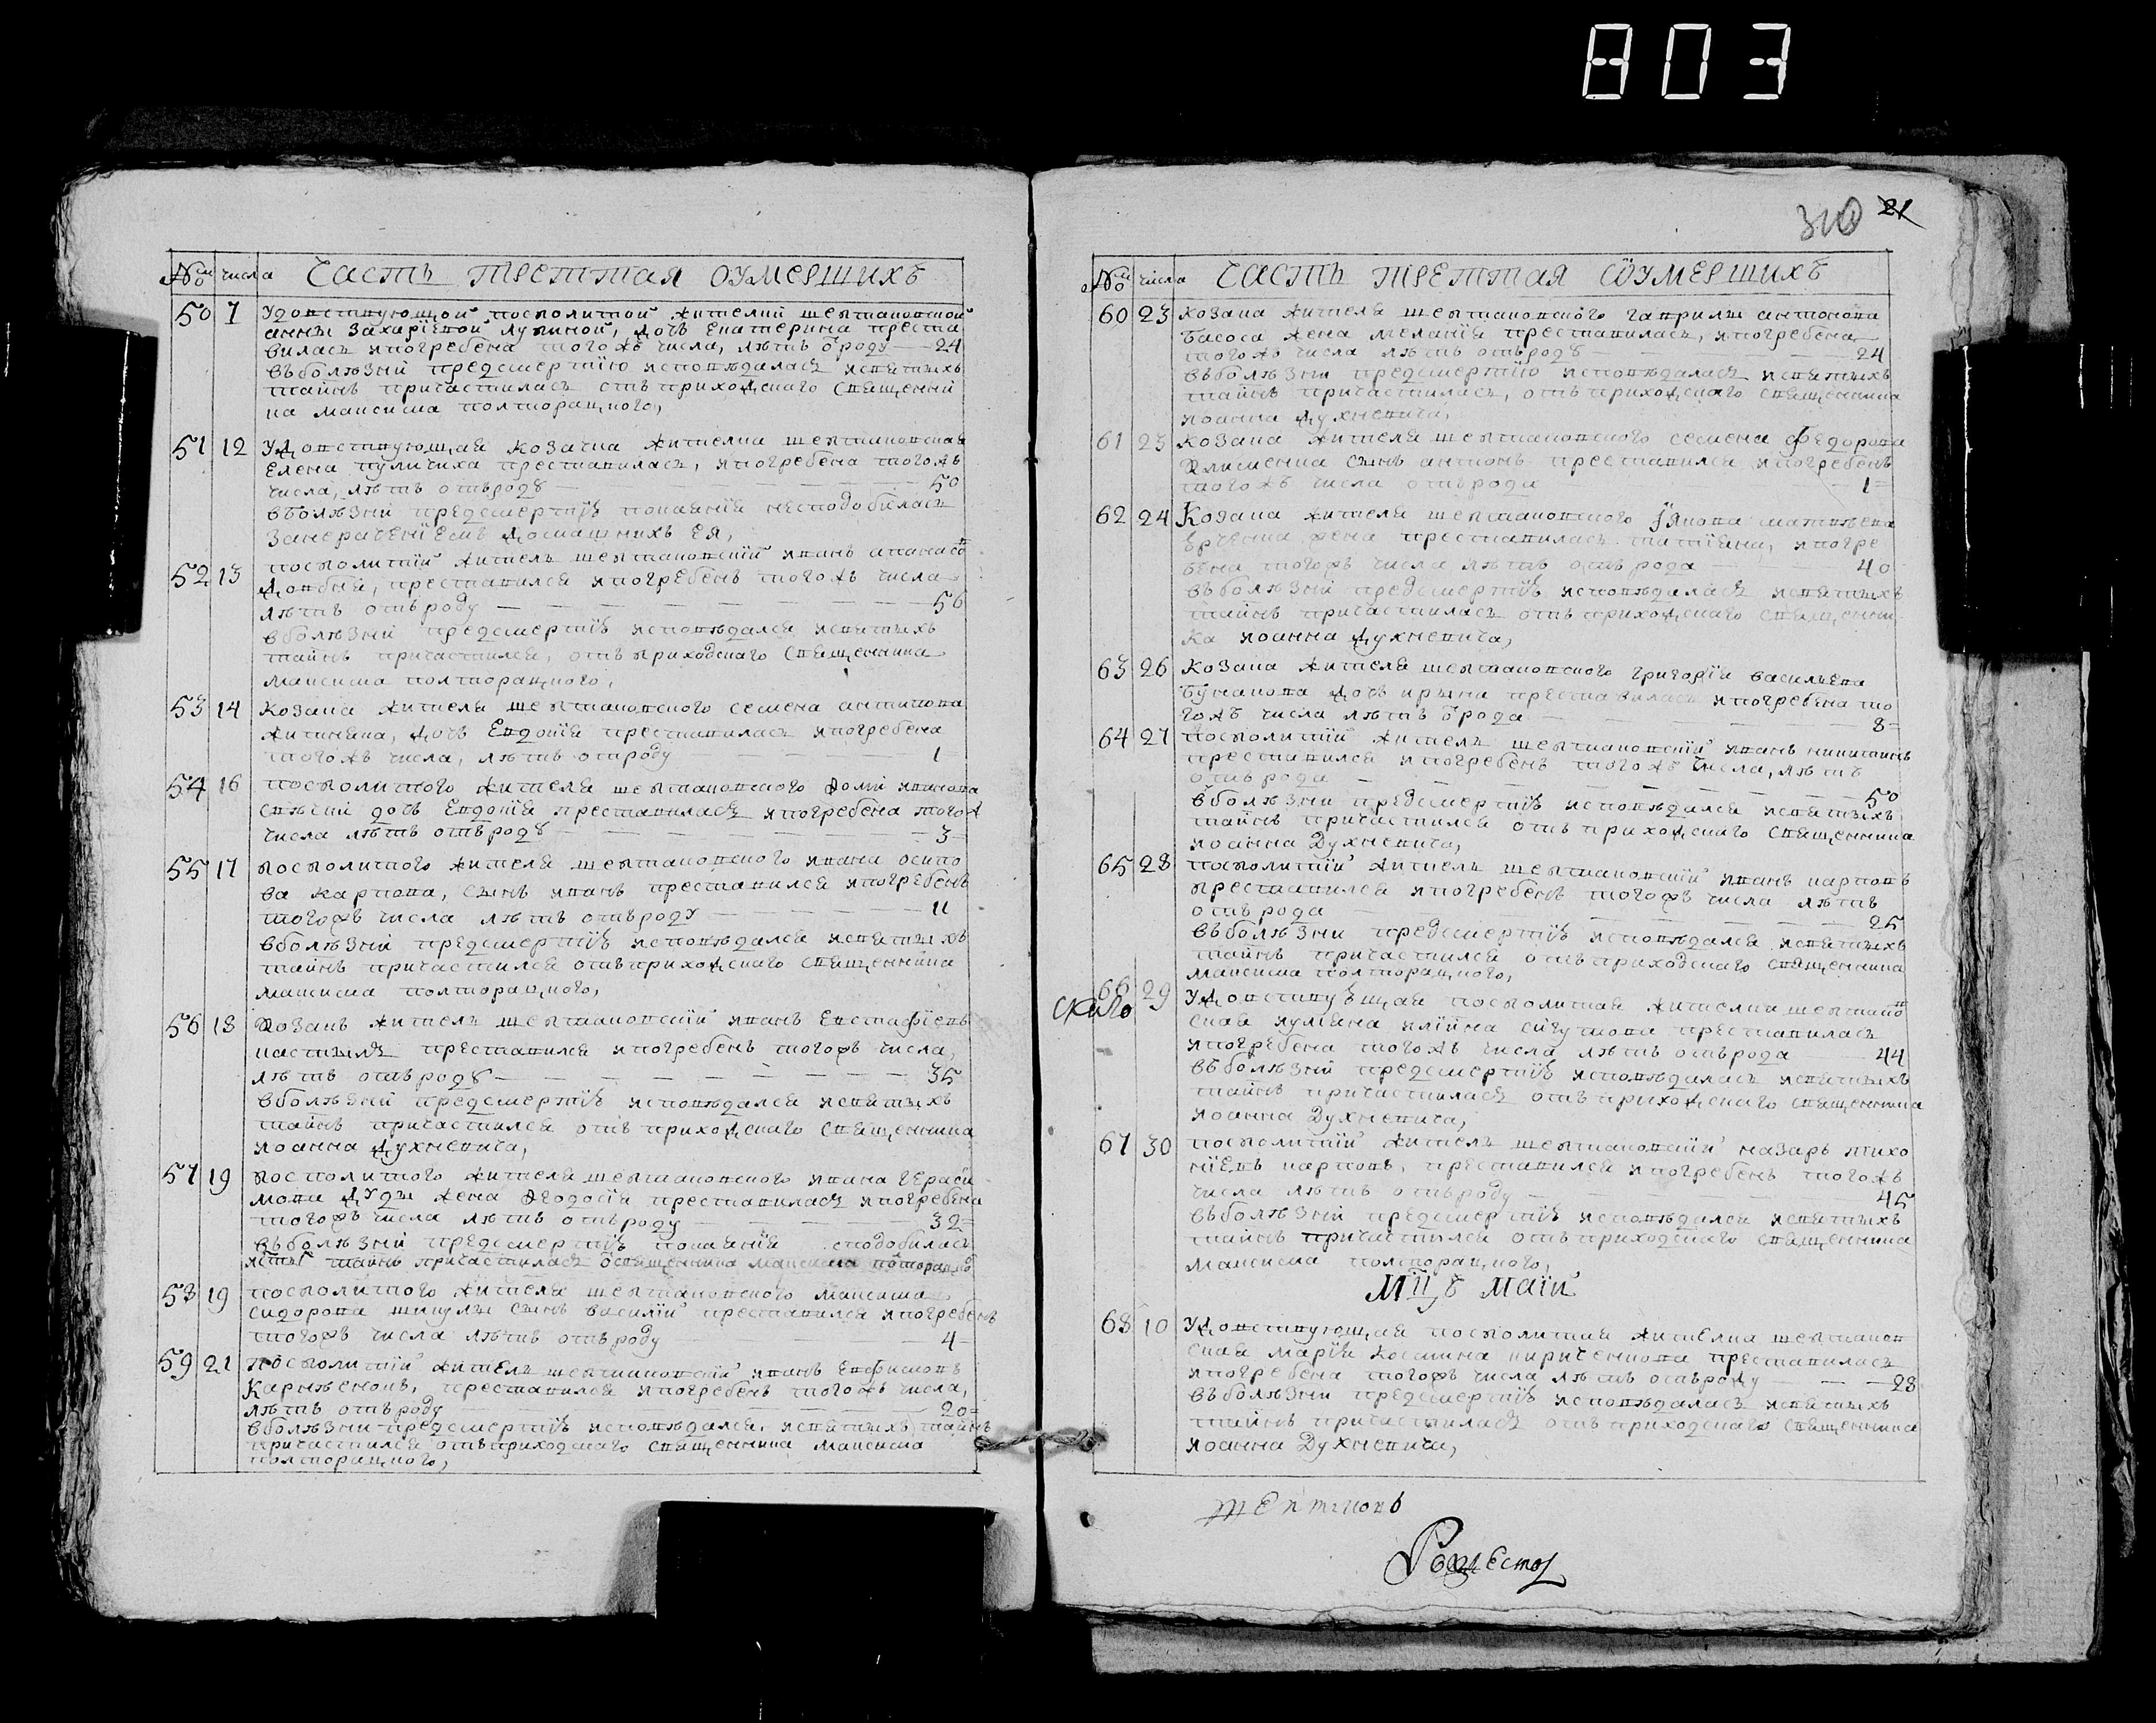 803
310 21
№ числа Часть треттая оумершихъ
50 7 Удовствующой посполитой жителки шептаковской
анны Захаріевой лупиной, дочь Екатерина преста
вилась ипогребена тогожъ числа, лѣтъ ѿроду 24
въболѣзни предсмертною исповѣдалась исвятыхъ
тайнъ причастилась отъ приходского священни
ка максима полторацкого,
51 12 Удовствующая козачка жителка шептаковская
Елена преставилась, ипогребена тогожъ
числа, лѣтъ отъроду 50
вболѣзни предсмертнѣ покаянія несподобилась
занераченіемъ домашнихъ ея,
52 13 посполитій житель шептаковскій иванъ
преставился ипогребенъ тогожъ числа
лѣтъ отъроду 56
вболѣзни предсмертнѣ исповѣдался исвятыхъ
тайнъ причастился, отъ приходского священника
максима полторацкого,
53 14 козака жителя шептаковского семена антипова
дочь Евдокія преставилась ипогребена
тогожъ числа, лѣтъ отроду 1
54 16 посполитого жителя шептаковского Фомы иванова
дочь Евдокія преставилась ипогребена тогож
числа лѣтъ отъроду 3
55 17 посполитого жителя шептаковского ивана осипо
ва карпова, сынъ иванъ преставился ипогребенъ
тогожъ числа лѣтъ отъроду 11
вболѣзни предсмертнѣ исповѣдался исвятыхъ
тайнъ причастился отъприходского священника
максима полторацкого,
56 18 Козакъ житель шептаковскій иванъ Евстафіевъ
преставился ипогребенъ тогожъ числа,
лѣтъ отъроду 35
вболѣзни предсмертнѣ исповѣдался исвятыхъ
тайнъ причастился отъ приходского священника
иоанна Духневича,
57 19 посполитого жителя шептаковского ивана гераси
мова дуды жена Феодосія преставилась ипогребена
тогожъ числа лѣтъ отъроду 32
въболѣзни предсмертнѣ покаянія сподобилась
тайнъ причастилась ѿсвященника максима
58 19 посполитого жителя шептаковского максима
сидорова шикулы сынъ василій преставился ипогребенъ
тогожъ числа лѣтъ отъроду 4
59 21 Посполитій житель шептаковскій иванъ Евфимовъ
преставился ипогребенъ тогожъ числа,
лѣтъ отъроду 20
вболѣзни предсмертнѣ исповѣдался, исвятыхъ тайнъ
причастился отъприходского священника максима
полторацкого,
№ числа Часть треттая ѿумершихъ
60 23 козака жителя шептаковского гаврилы антонова
басоса жена меланія преставилась, ипогребена
тогожъ числа лѣтъ отъроду 24
въболѣзни предсмертною исповѣдалась исвятыхъ
тайнъ причастилась, отъ приходского священника
иоанна Духневича,
61 23 козака жителя шептаковского семена федорова
клименка сынъ антонъ преставился ипогребенъ
тогожъ числа отърода 1
62 24 Козака жителя шептаковского якова матвѣева
жена преставилась татіана, ипогре
бена тогожъ числа лѣтъ отърода 40
въболѣзни предсмертнѣ исповѣдалась исвятыхъ
тайнъ причастилась отъ приходского священни
ка иоанна Духневича,
63 26 козака жителя шептаковского григорія васильева
дочь ирына преставилась ипогребена то
гожъ числа лѣтъ ѿрода 8
64 27 посполитій житель шептаковскій иванъ никитинъ
преставился ипогребенъ тогожъ числа, лѣтъ
отърода 50
вболѣзни предсмертнѣ исповѣдался исвятыхъ
тайнъ причастился отъ приходского священника
иоанна Духневича,
65 28 посполитій житель шептаковскій иванъ карповъ
преставился ипогребенъ тогожъ числа лѣтъ
отърода 25
въболѣзни предсмертнѣ исповѣдался исвятыхъ
тайнъ причастился отъ приходского священника
максима полторацкого,
66 29 Удовствующая посполитая жителка шептаков
ская преставилась
ипогребена тогожъ числа лѣтъ отърода 44
въболѣзни предсмертнѣ исповѣдалась исвятыхъ
тайнъ причастилась отъ приходского священника
иоанна Духневича,
67 30 посполитій житель шептаковскій назаръ тихо
ніевъ карповъ, преставился ипогребенъ тогожъ
числа лѣтъ отъроду 45
въболѣзни предсмертнѣ исповѣдался исвятыхъ
тайнъ причастился отъ приходского священника
максима полторацкого,
Маій
68 10 Удовствующая посполитая жителка шептаков
ская марія козмина кириченкова преставилась
ипогребена тогожъ числа лѣтъ отъроду 28
въболѣзни предсмертнѣ исповѣдалась исвятыхъ
тайнъ причастилась отъ приходского священника
иоанна Духневича,